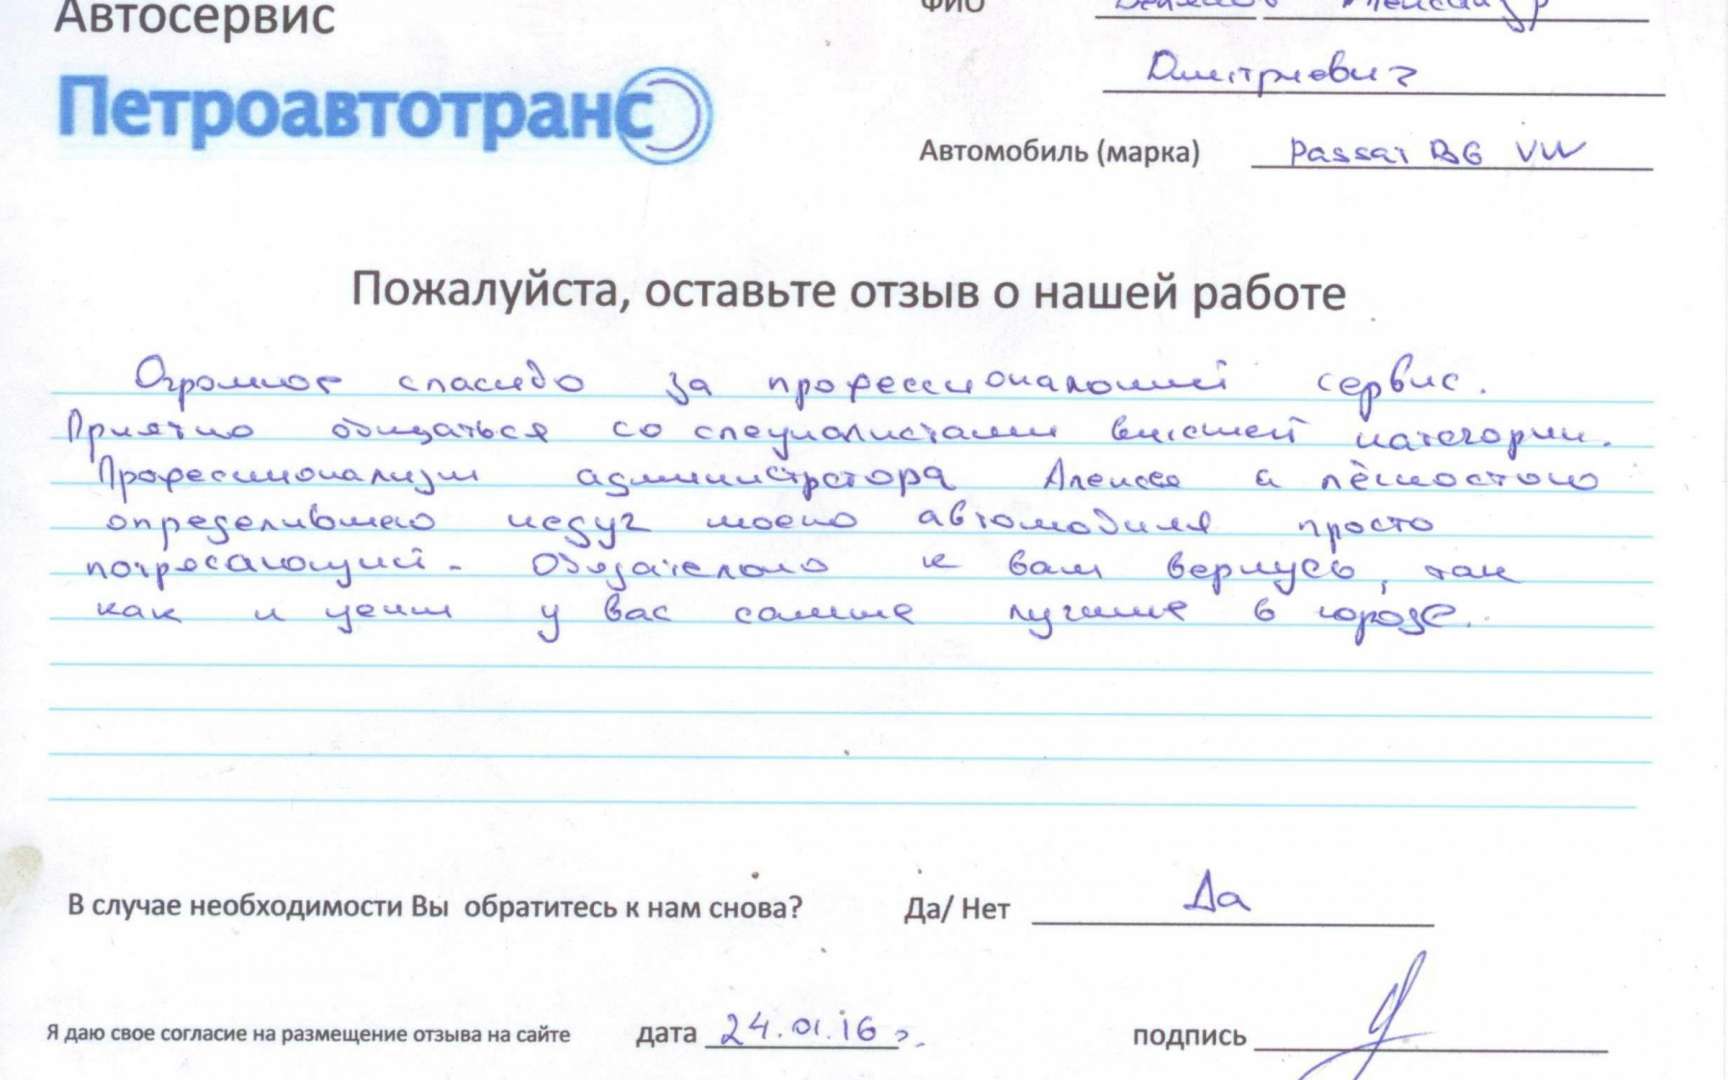 Автосервис
Петроавтотранс
ФИО Александр
Дмитриевич
Автомобиль (марка) Passat B6 VW
Пожалуйста, оставьте отзыв о нашей работе
Огромное спасибо за профессиональный сервис.
Приятно общаться со специалистами высшей категории.
Профессионализм администратора Алексея с лёгкостью
определившего недуг моего автомобиля просто
потресающий. Обязательно к вам вернусь, так
как и цены у вас самые лучшие в городе.
В случае необходимости Вы обратитесь к нам снова? Да/ Нет Да
Я даю свое согласие на размещение отзыва на сайте дата 24.01.16 г. подпись